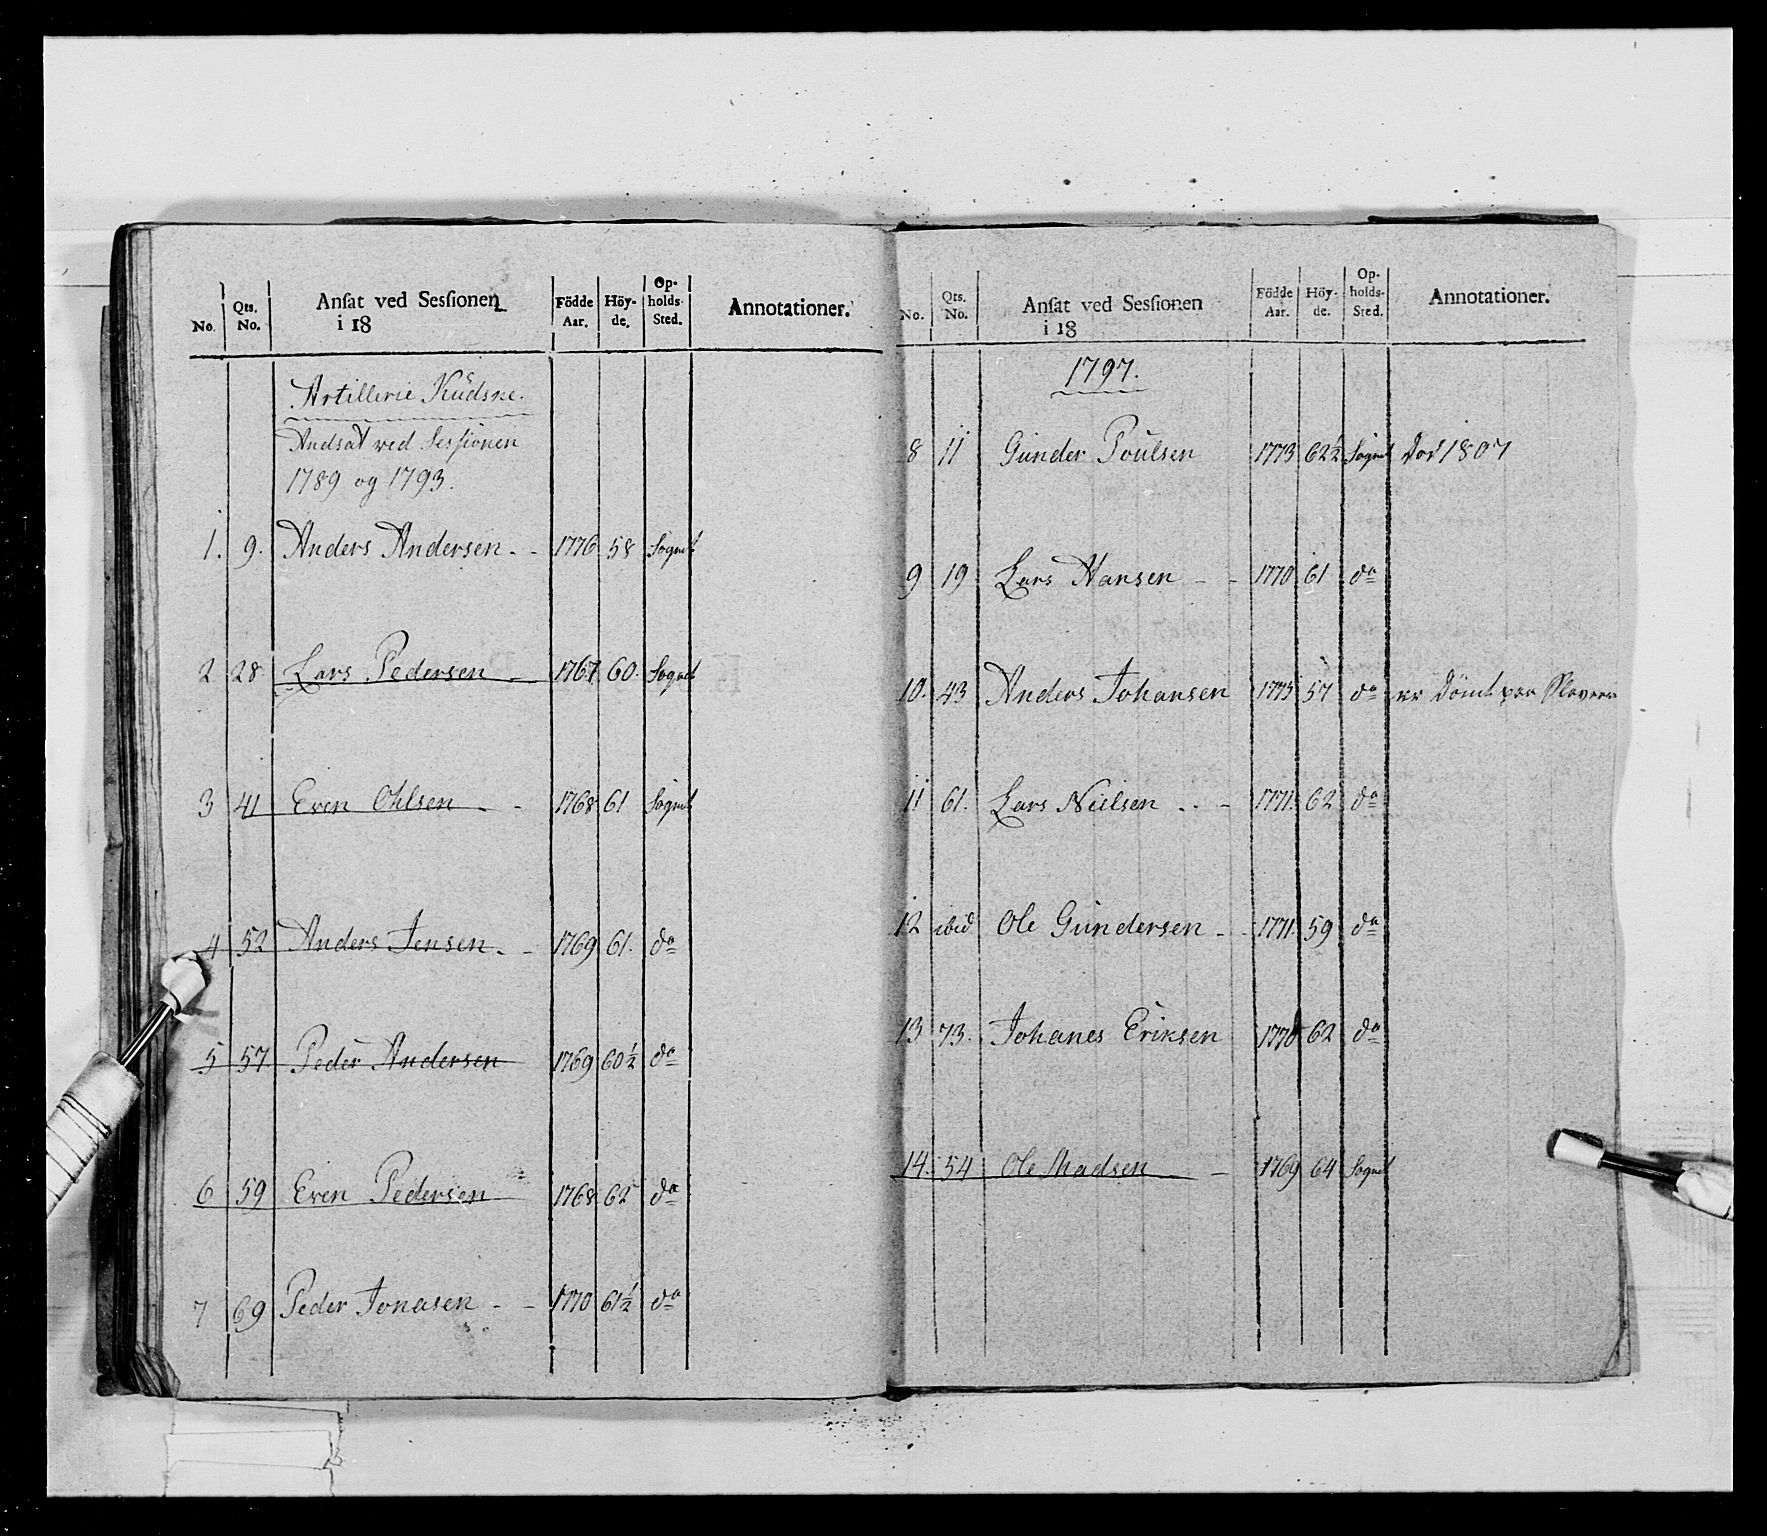 No. Qts. No. Ansat ved Sessionen i 18 Födde Aar. Höy-de. Op-holds-Sted. Annotationer.
Artillerie Kudske.
Andsat ved Sessionen
1789 og 1793.
1. 9. Anders Andersen - - 1776 58 Sognet
2 28 Lars Pedersen - 1767 60. Sognet
3 41 Even Ohlsen - - 1768 61 Sognet
4 52 Anders Jensen. - 1769 61. do
5 57 Peder Andersen 1769 60½ do
6 59 Even Pedersen 1768 62 do
7 69 Peder Jonasen - - 1770 61½ do
No. Qts. No. Ansat ved Sessionen i 18 Födde Aar. Höy-de. Op-holds-Sted. Annotationer.
1797.
8 11 Gunder Poulsen 1773 62½ Sognet Död 1807
9 19 Lars Hansen - - 1770 61 do
10. 43 Anders Johansen 1775 57 do er Dömt paa
11 61. Lars Nielsen - - 1771. 62 do
12 ibid Ole Gundersen - - 1771. 59 do
13 73. Johanes Eriksen 1770 62 do
14. 54 Ole Madsen - 1769 64 Sognet